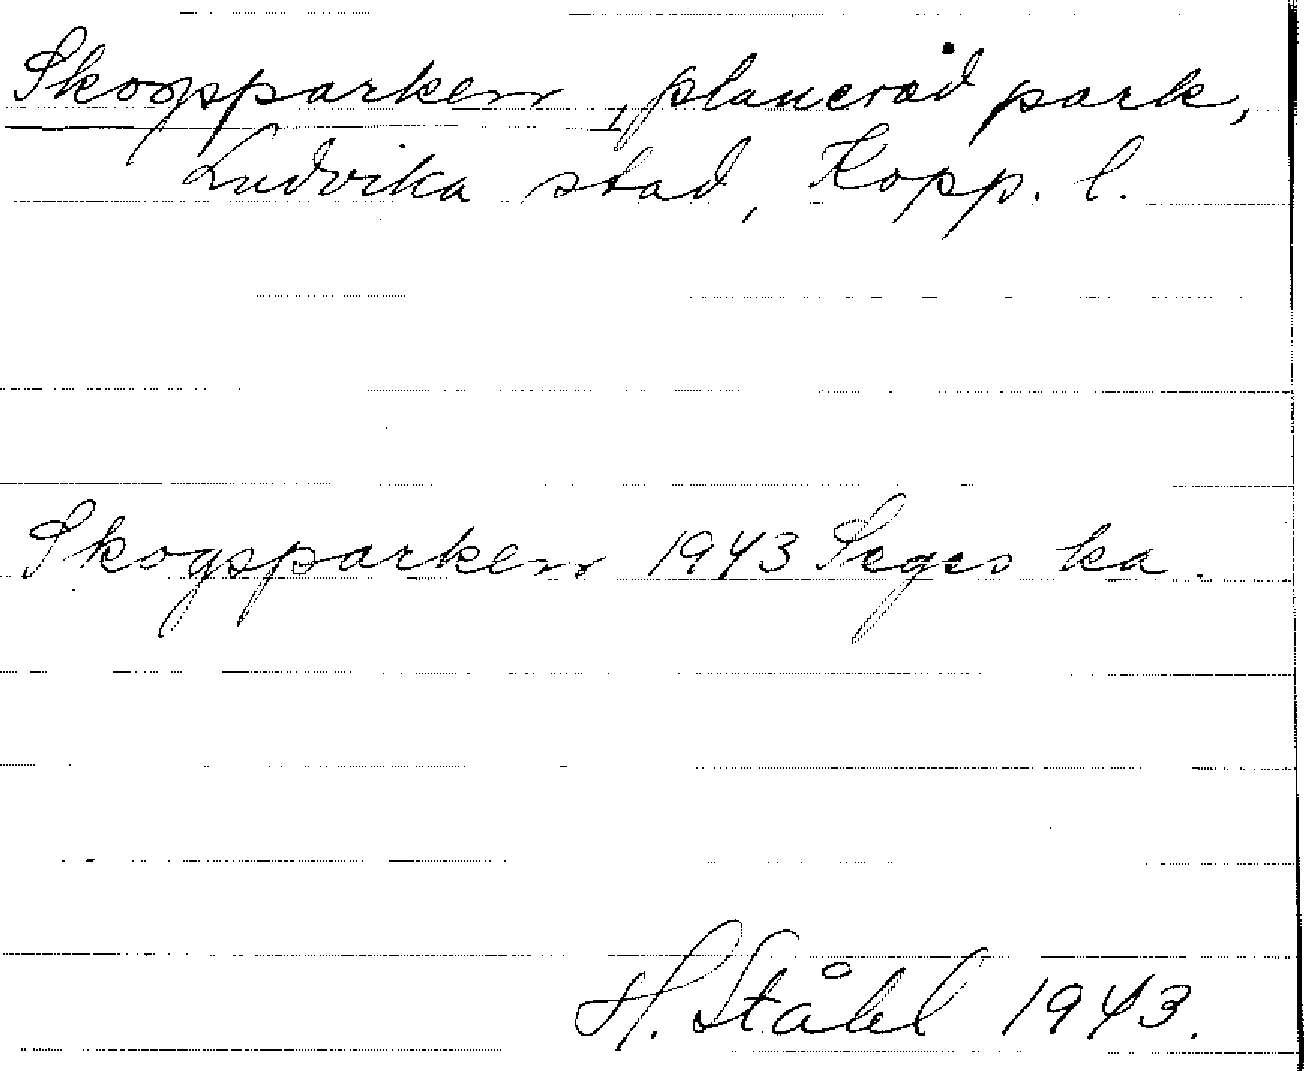 Skogsparken, planerad park,
Ludvika stad, Kopp. l.
Skogsparken 1943 Seges ka.
H. Ståhl 1943.